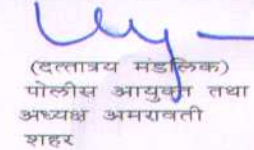 (दत्तात्रय मंडलिक)
पोलीस आयुक्त तथा
अध्यक्ष अमरावती
शहर